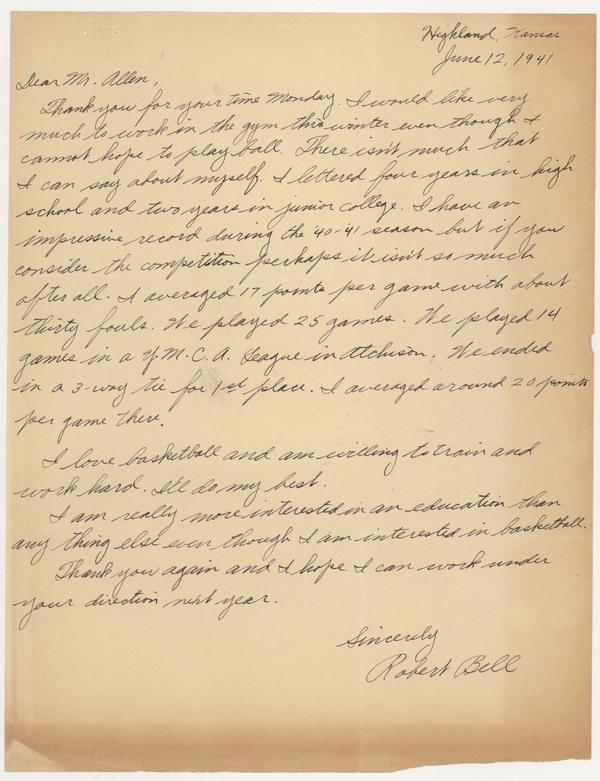 Highland, Kansas
June 12, 1941
Dear Mr. Allen,
Thank you for your time Monday. I would like very
much to work in the gym this winter even though I
cannot hope to play ball. There isn't much that
I can say about myself. I lettered four years in high
school and two years in junior college. I have an
impressive record during the '40-41 season but if you
consider the competition perhaps it isn't so much
after all. I averaged 17 points per game with about
thirty fouls. We played 25 games. We played 14
games in a Y.M.C.A. League in Atchison. We ended
in a 3-way tie for 1st place. I averaged around 20 points
per game there.
I love basketball and am willing to train and
work hard. I'll do my best.
I am really more interested in an education than
any thing else even though I am interested in basketball.
Thank you again and I hope I can work under
your direction next year.
Sincerly
Robert Bell